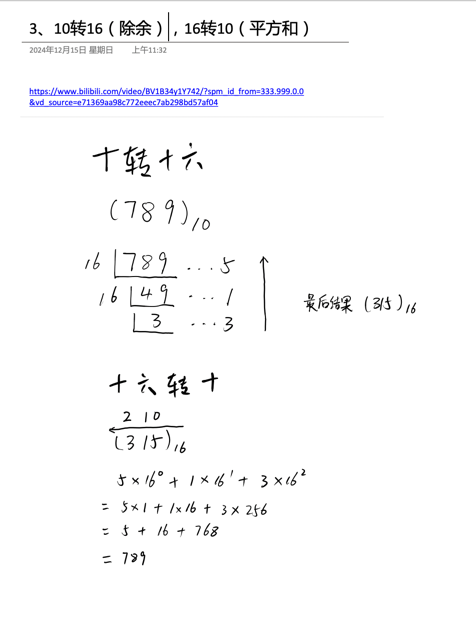 3、10转16（除余），16转10（平方和）
2024年12月15日 星期日 上午11:32
https://www.bilibili.com/video/BV1B34y1Y742/?spm_id_from=333.999.0.0
&vd_source=e71369aa98c772eeec7ab298bd57af04
十转十六
(789)₁₀
16 789 ... 5
16 49 ... 1
3 ... 3
最后结果 (315)₁₆
十六转十
2 1 0
(315)₁₆
5×16⁰ + 1×16¹ + 3×16²
= 5×1 + 1×16 + 3×256
= 5 + 16 + 768
= 789